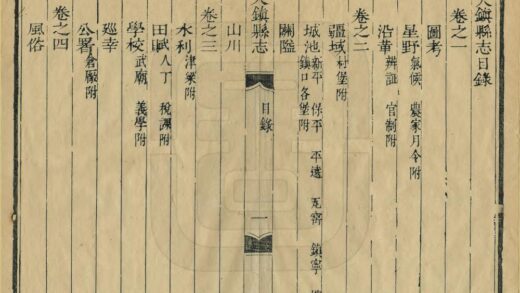 天鎮縣志目錄
卷之一
圖考
星野 氣候 農家月令附
沿革 辨証 官制附
卷之二
疆域 村堡附
城池 新平 保平 平遠 瓦窰 鎮寧
鎮口各堡附
關隘
天鎮縣志 目錄 一
山川
卷之三
水利 津梁附
田賦 人丁 稅課附
學校 武廟 義學附
巡幸
公署 倉廠附
卷之四
風俗